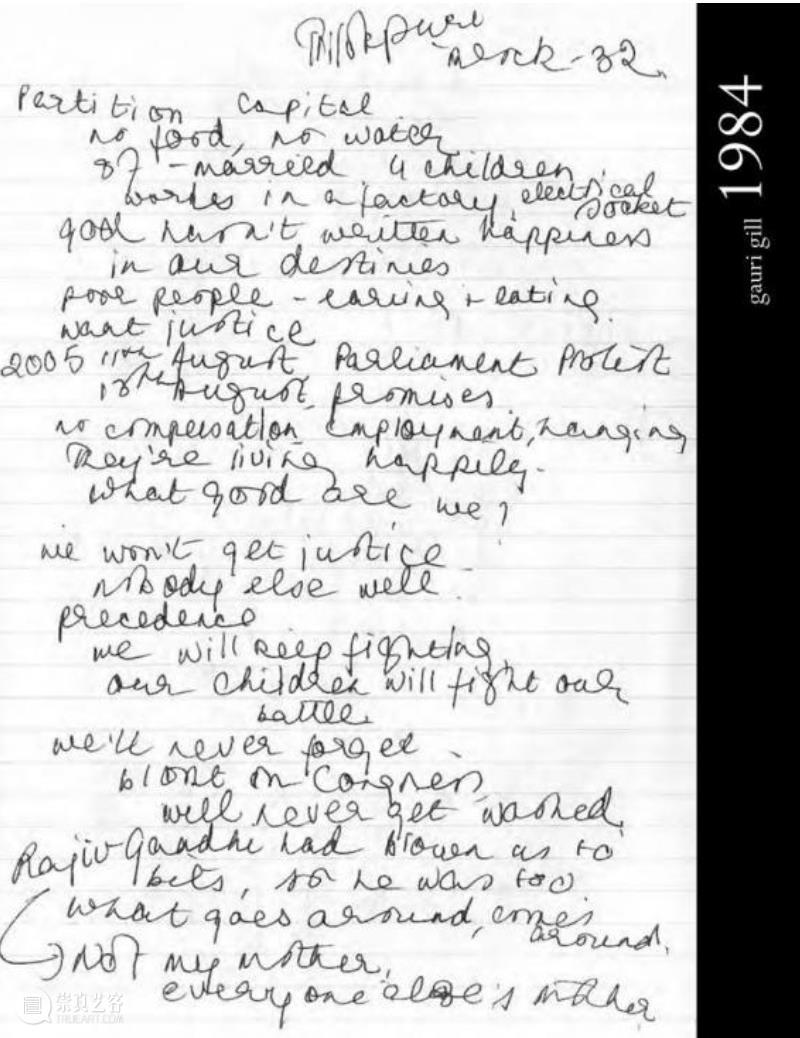 Trilokpuri
Block-32
Partition capital
no food, no water
87 - married 4 children
works in a factory, electrical
socket
god hasn't written happiness
in our destinies
poor people - earning + eating
want justice
2005 11th August Parliament Protest
18th August promises
no compensation employment, hanging
They're living happily.
what good are we?
we won't get justice
nobody else will
precedence
we will keep fighting,
our children will fight our
battle.
we'll never forget
blot on Congress
will never get washed
Rajiv Gandhi had blown us to
bits, so he was too
what goes around, comes
around.
Not my mother,
everyone else's mother
1984
gauri gill
崇真艺客
TRUEART.COM